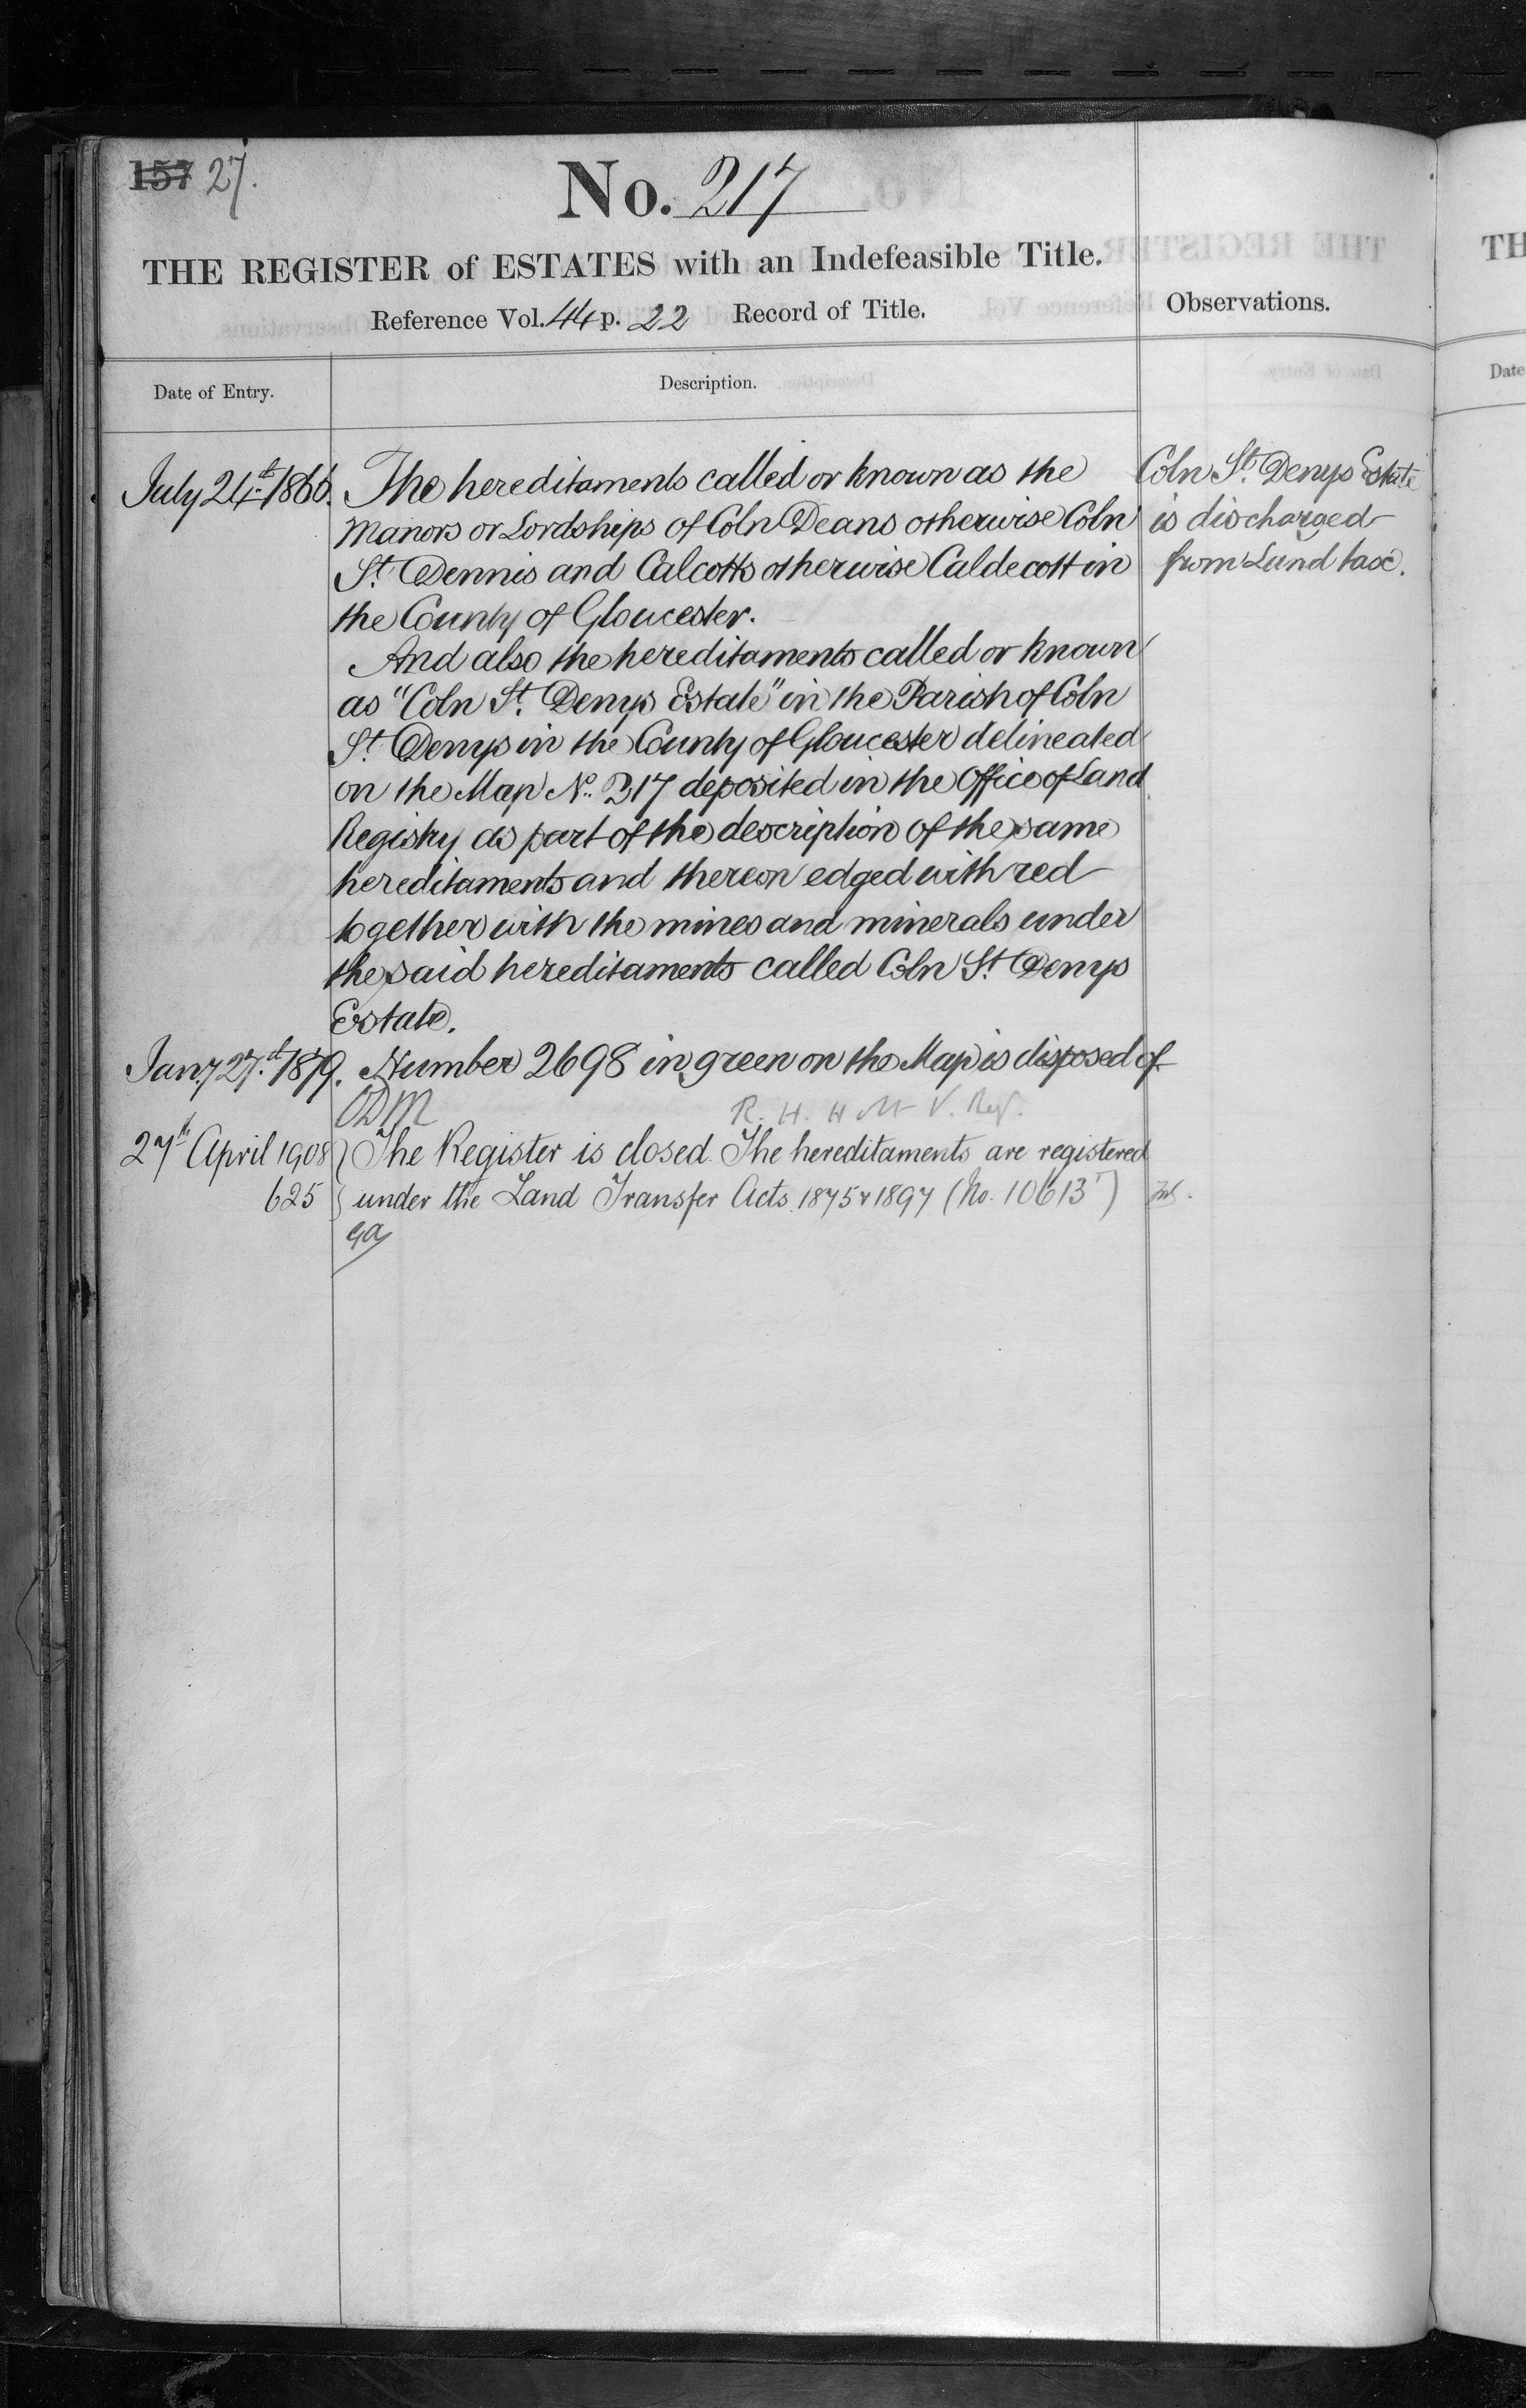 157 27.
No. 217
THE REGISTER of ESTATES with an Indefeasible Title.
Reference Vol. 44 p. 22 Record of Title.
Observations.
Date of Entry.
Description.
July 24th 1866. The hereditaments called or known as the
Manors or Lordships of Coln Deans otherwise Coln
St. Dennis and Calcotts otherwise Caldecott in
the County of Gloucester.
And also the hereditaments called or known
as "Coln St. Denys Estate" in the Parish of Coln
St. Denys in the County of Gloucester delineated
on the Map No. 217 deposited in the Office of Land
Registry as part of the description of the same
hereditaments and thereon edged with red
together with the mines and minerals under
the said hereditaments called Coln St. Denys
Estate.
Coln St. Denys Estate
is discharged
from Land tax.
Jany 27th 1879. Number 2698 in green on the Map is disposed of
ODM R. H. H
27th April 1908 The Register is closed. The hereditaments are registered
625 under the Land Transfer Acts 1875 & 1897 (No. 10613)
TH
Date